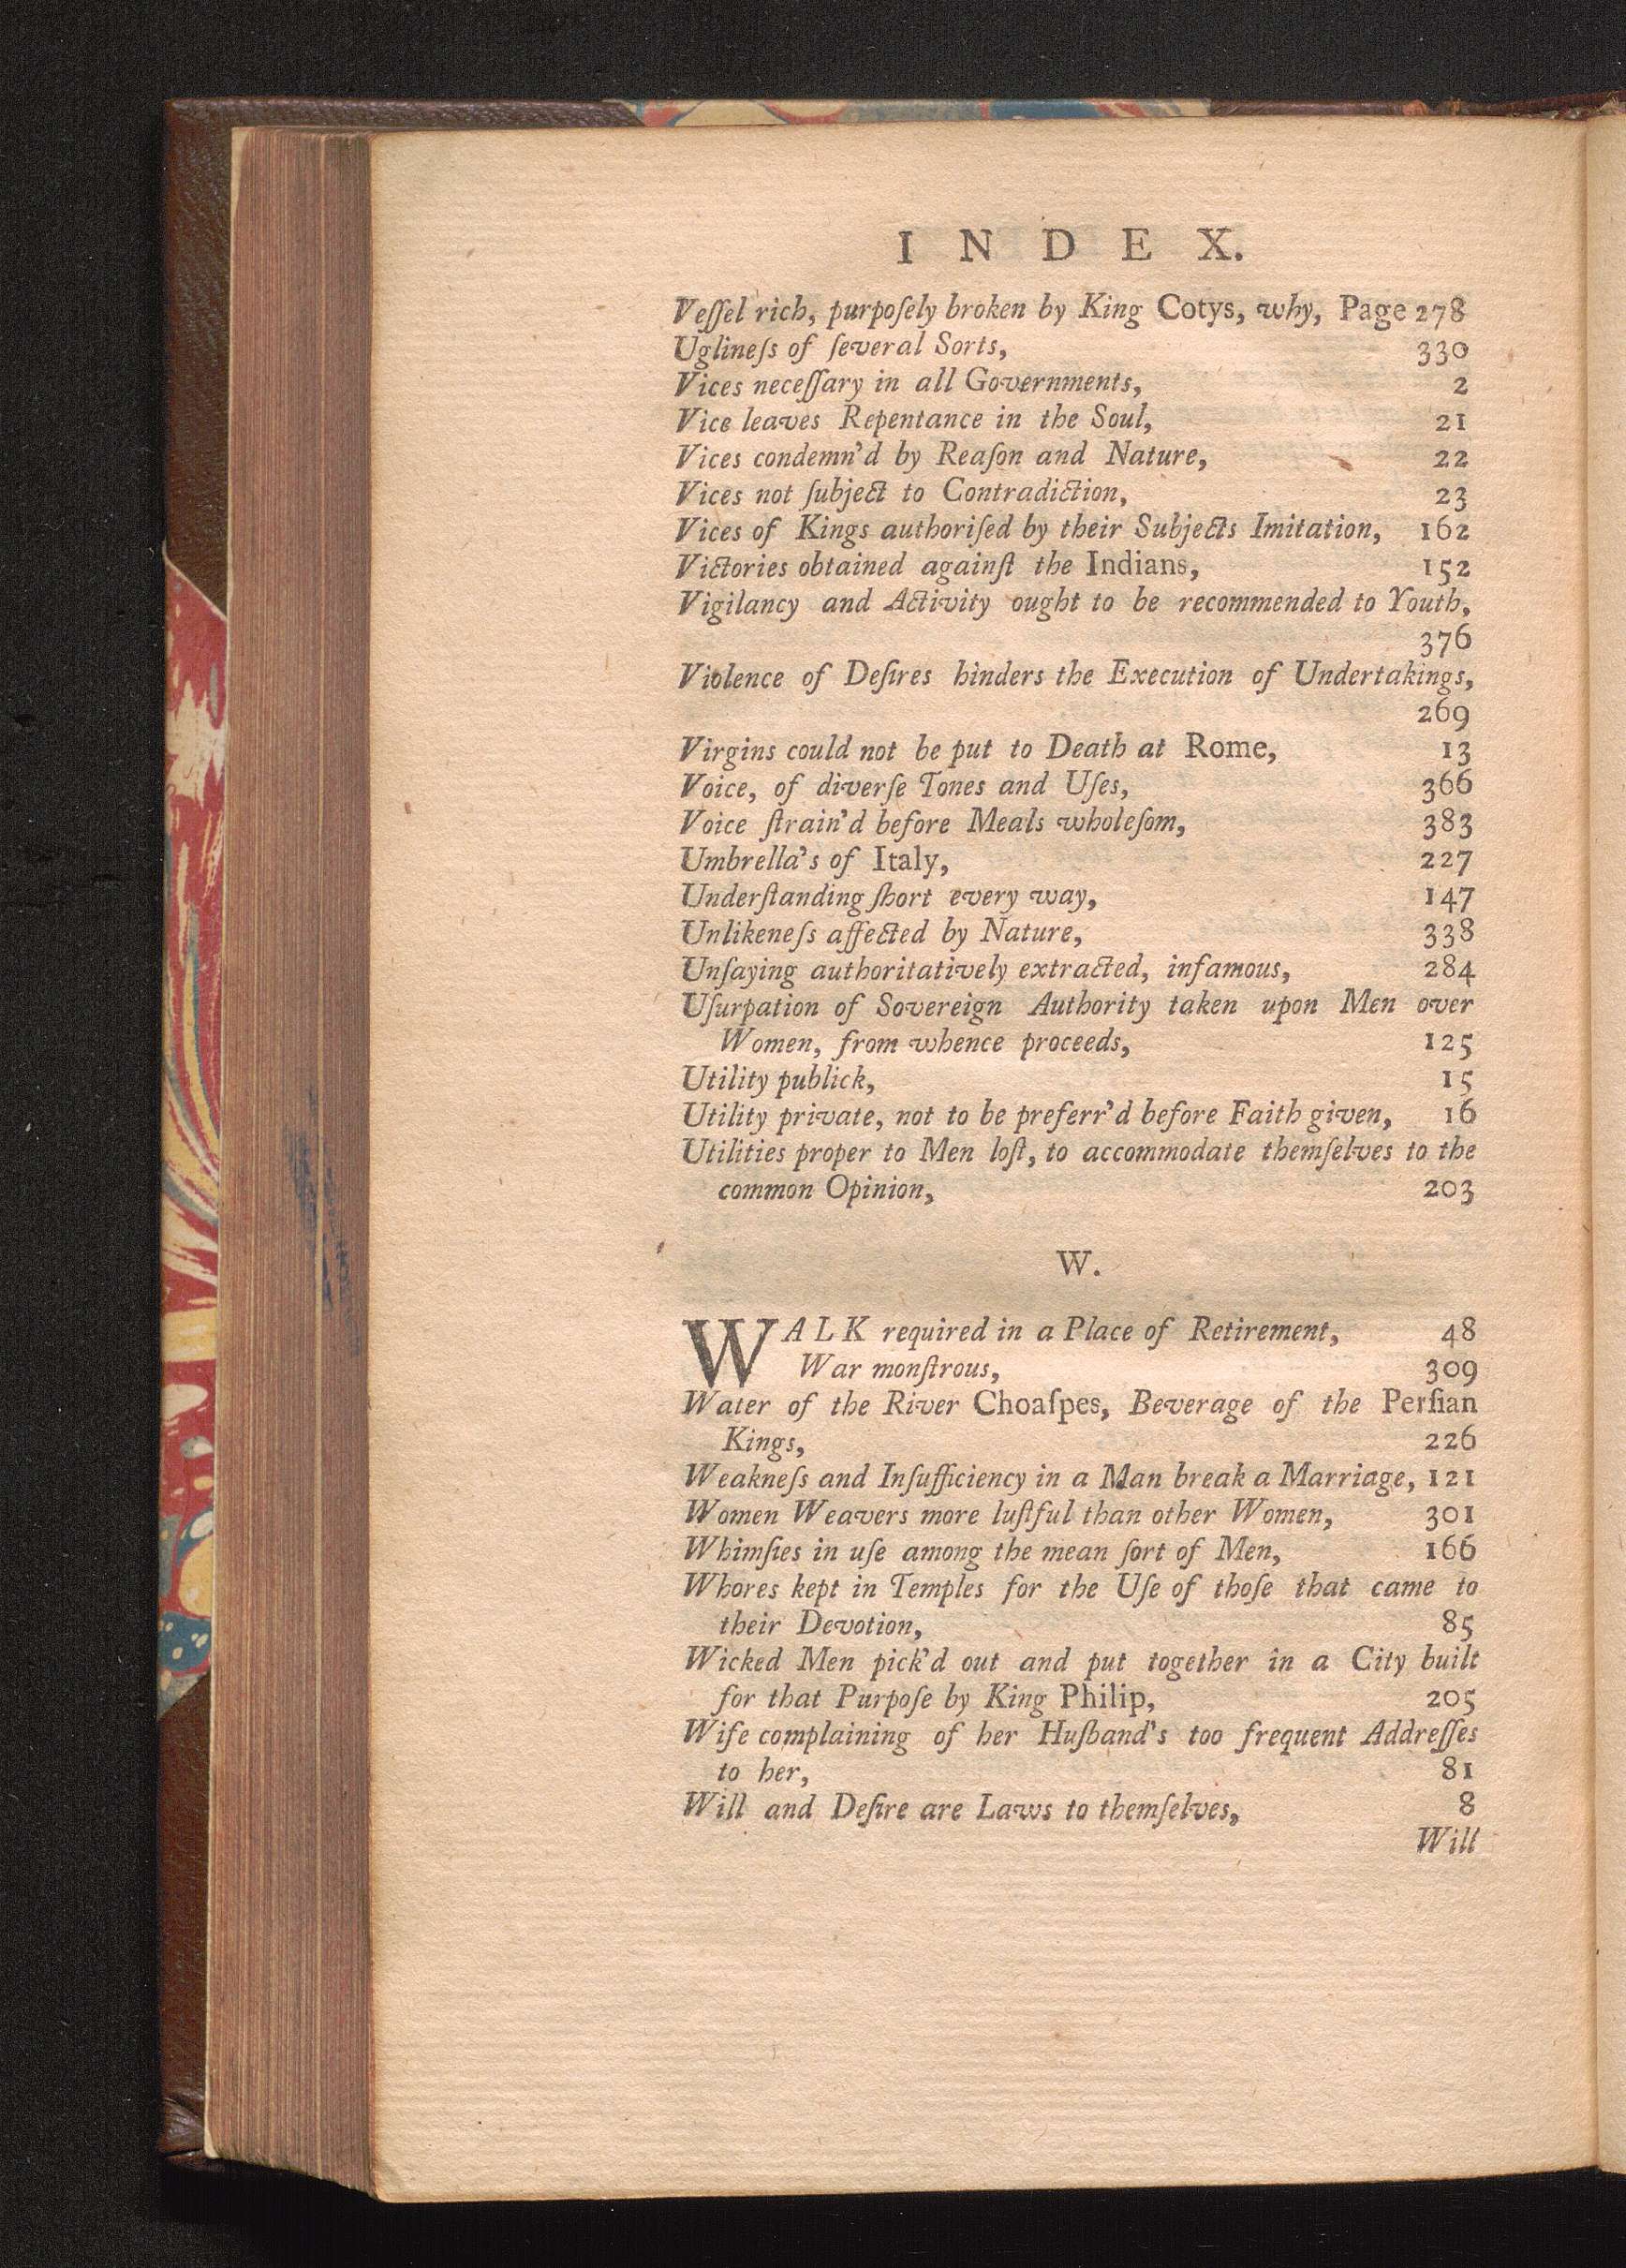 INDEX.
Veſſel rich, purpoſely broken by King Cotys, why, Page 278
Uglineſs of ſeveral Sorts, 330
Vices neceſſary in all Governments, 2
Vice leaves Repentance in the Soul, 21
Vices condemn'd by Reaſon and Nature, 22
Vices not ſubject to Contradiction, 23
Vices of Kings authoriſed by their Subjects Imitation, 162
Victories obtained againſt the Indians, 152
Vigilancy and Activity ought to be recommended to Youth,
376
Violence of Deſires hinders the Execution of Undertakings,
269
Virgins could not be put to Death at Rome, 13
Voice, of diverſe Tones and Uſes, 366
Voice ſtrain'd before Meals wholeſom, 383
Umbrella's of Italy, 227
Underſtanding ſhort every way, 147
Unlikeneſs affected by Nature, 338
Unſaying authoritatively extracted, infamous, 284
Uſurpation of Sovereign Authority taken upon Men over
Women, from whence proceeds, 125
Utility publick, 15
Utility private, not to be preferr'd before Faith given, 16
Utilities proper to Men loſt, to accommodate themſelves to the
common Opinion, 203
W.
WALK required in a Place of Retirement, 48
War monſtrous, 309
Water of the River Choaſpes, Beverage of the Perſian
Kings, 226
Weakneſs and Inſufficiency in a Man break a Marriage, 121
Women Weavers more luſtful than other Women, 301
Whimſies in uſe among the mean ſort of Men, 166
Whores kept in Temples for the Uſe of thoſe that came to
their Devotion, 85
Wicked Men pick'd out and put together in a City built
for that Purpoſe by King Philip, 205
Wife complaining of her Huſband's too frequent Addreſſes
to her, 81
Will and Deſire are Laws to themſelves, 8
Will